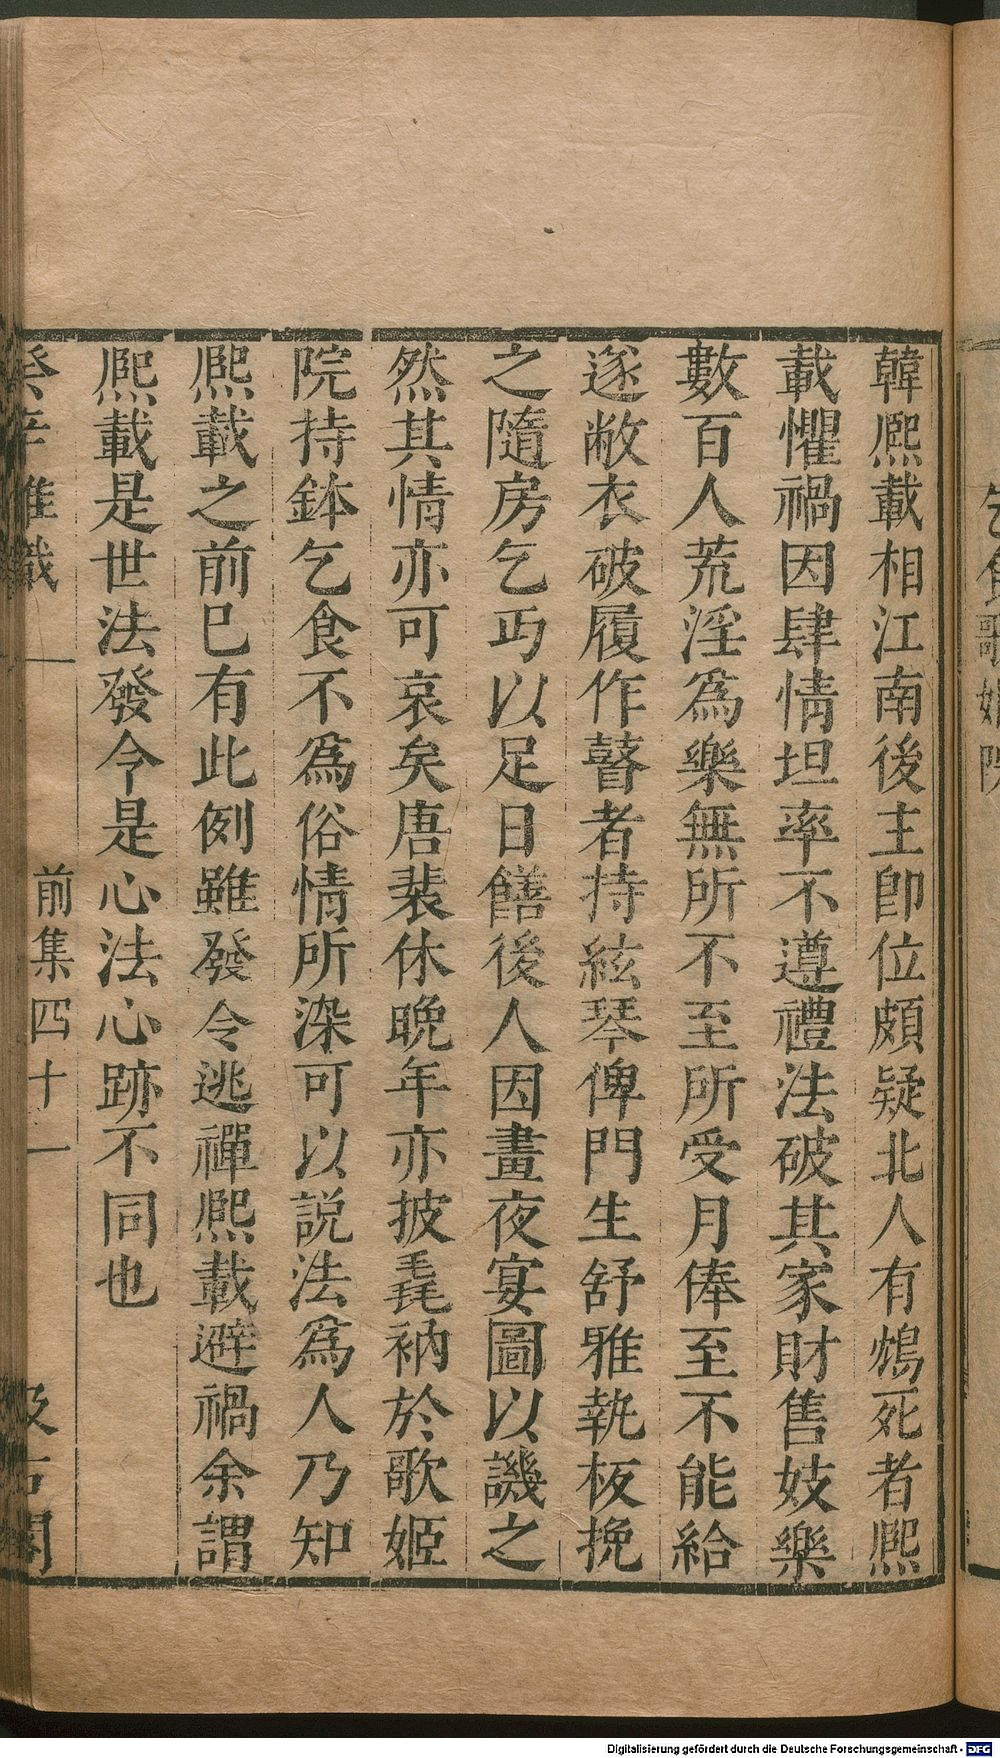 韓熈載相江南後主卽位頗疑北人有鴆死者熈
載懼禍因肆情坦率不遵禮法破其家財售妓樂
數百人荒淫爲樂無所不至所受月俸至不能給
遂敝衣破履作瞽者持絃琴俾門生舒雅執板挽
之隨房乞丐以足日饍後人因畫夜宴圖以譏之
然其情亦可哀矣唐裴休晚年亦披毳衲於歌姬
院持鉢乞食不爲俗情所染可以説法爲人乃知
熈載之前巳有此例雖發令逃禪熈載避禍余謂
熈載是世法發令是心法心跡不同也
癸辛雜識 前集四十一 汲古閣
乞食歌姬院
Digitalisierung gefördert durch die Deutsche Forschungsgemeinschaft - DFG